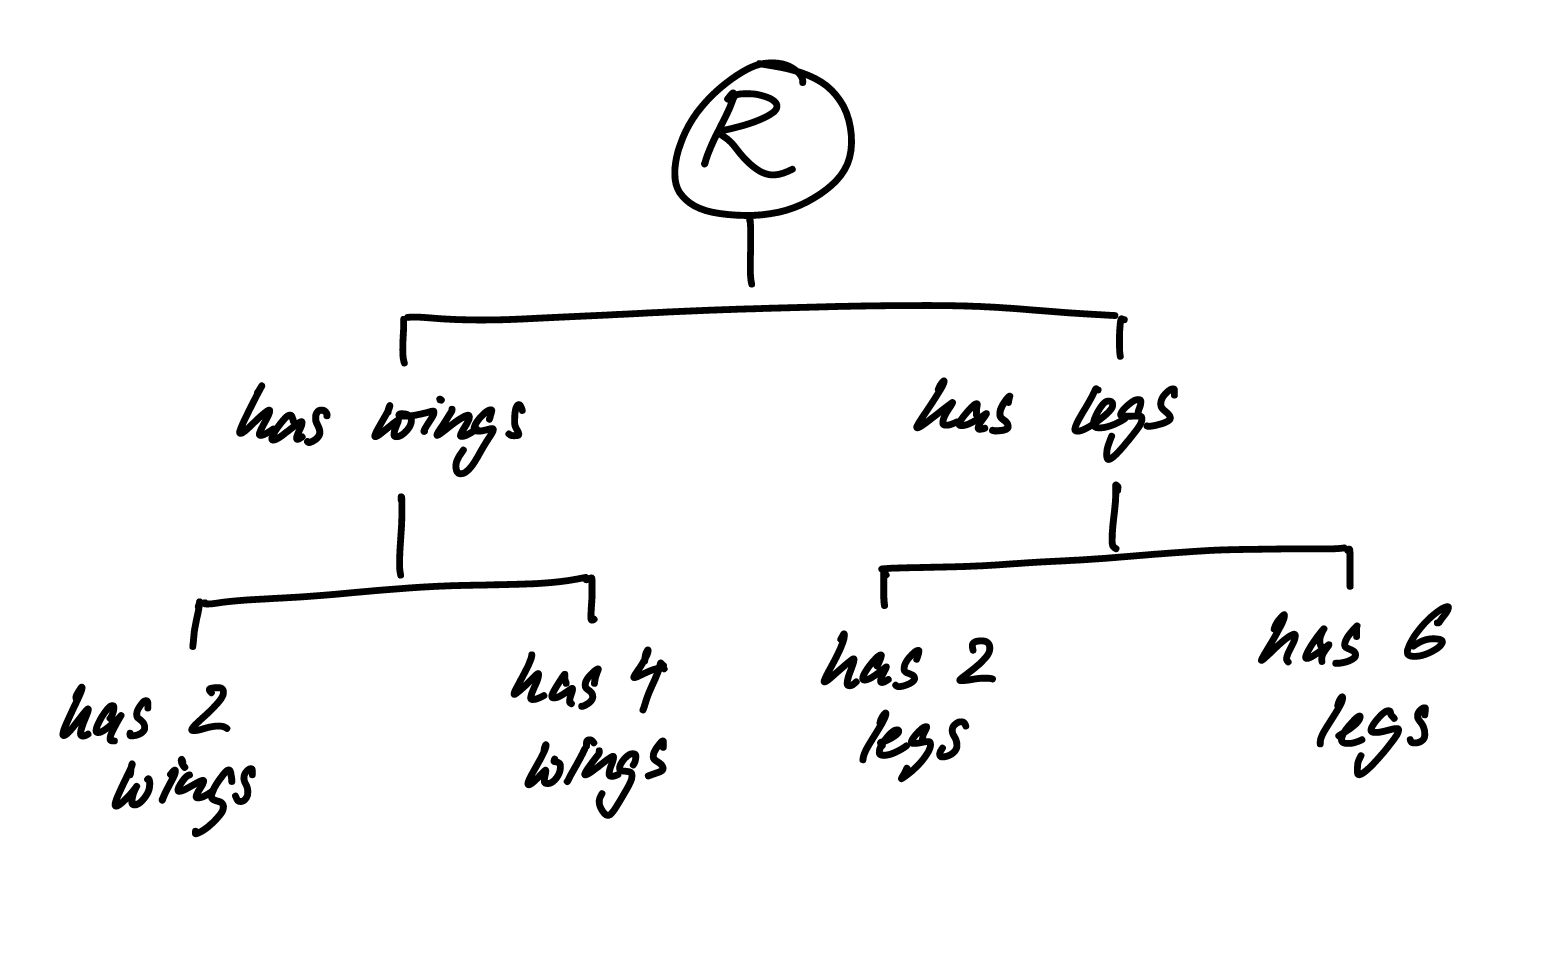 R
has wings
has legs
has 2
wings
has 4
wings
has 2
legs
has 6
legs